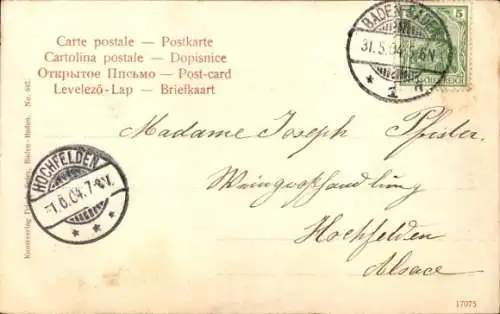 Carte postale — Postkarte
Cartolina postale — Dopisnice
Открытое Письмо — Post-card
Levelező-Lap — Briefkaart
BADEN-BADEN
31.5.04. 5-6N.
* 1 n
5
REICH
Madame Joseph Pfister
Weingrosshandlung
Hochfelden
Alsace
HOCHFELDEN
1.6.04. 7-8V.
* * *
Kunstverlag Baden-Baden. Nr.
17075